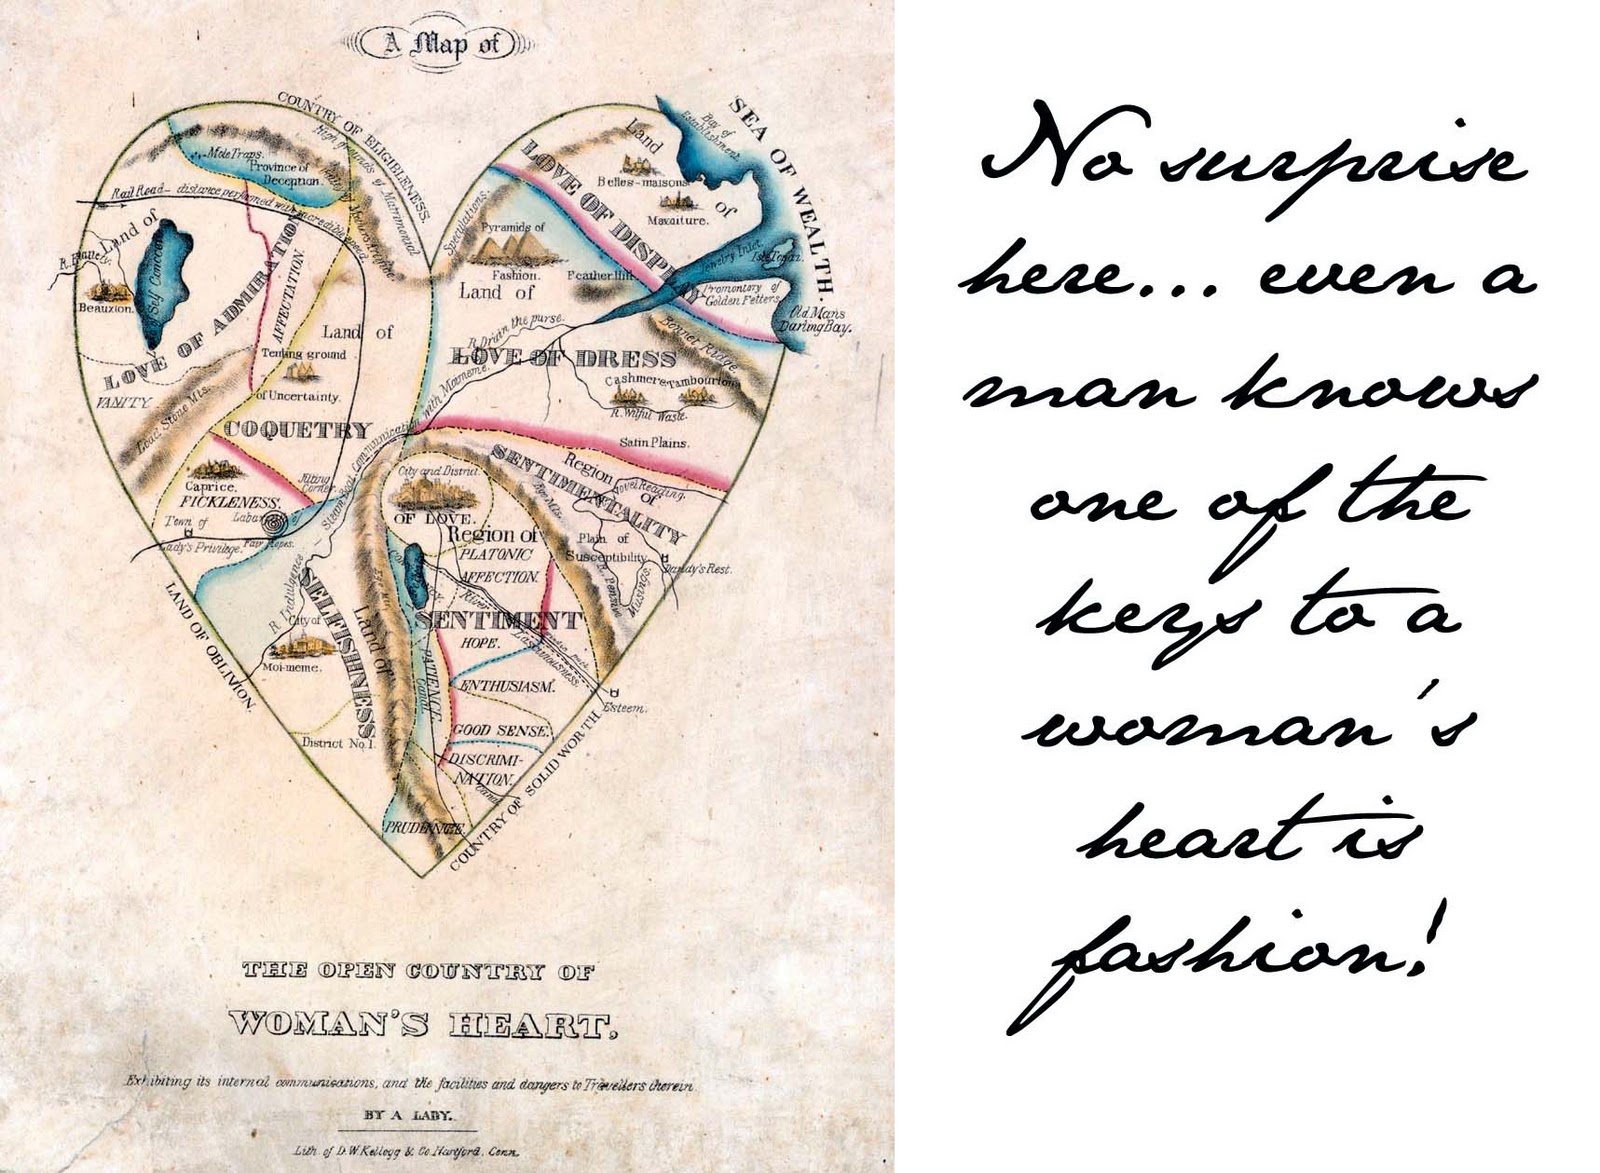 A Map of
COUNTRY OF ELIGIBLENESS.
High grounds of Matrimonial
Speculations.
Mole Traps.
Province of
Deception.
Rail Road - distance performed with incredible speed
Land of
LOVE OF ADMIRATION
Beauxton.
of Self Conceit
VANITY.
Load Stone Mts.
AFFECTATION.
Land of
COQUETRY
Teuting ground
of Uncertainty.
Caprice.
FICKLENESS.
Jilting
Corner.
Town of
Lady's Privilege.
Fair Hopes.
LAND OF OBLIVION.
R. Indulgence
City of
Moi-meme.
Land of
SELFISHNESS
District No 1.
SEA OF WEALTH.
Bay of
Establishment.
Land
of
LOVE OF DISPL
Belles-maisons
Mavoiture.
Jewelry Inlet.
Isle Topaz.
Promontory of
Golden Fetters.
Old Mans
Darling Bay.
Pyramids of
Fashion.
Feather Hill
Land of
LOVE OF DRESS
R. Drain the purse.
Bonnet Ridge.
Cashmere
Tambourton
R. Wilful Waste.
Satin Plains.
Steam Boat Communication with Moimeme.
Region
of
SENTIMENTALITY
Novel Reading.
Plain of
Susceptibility.
Dandy's Rest.
City and District
OF LOVE.
Region of
PLATONIC
AFFECTION.
SENTIMENT
River
Lastingness.
HOPE.
ENTHUSIASM.
Esteem.
PATIENCE.
Canal
GOOD SENSE.
DISCRIMI-
NATION.
PRUDENCE.
COUNTRY OF SOLID WORTH.
THE OPEN COUNTRY OF
WOMAN'S HEART,
Exhibiting its internal communications, and the facilities and dangers to Travellers therein.
BY A LADY.
Lith. of D.W. Kellogg & Co. Hartford, Conn.
No surprise
here... even a
man knows
one of the
keys to a
woman's
heart is
fashion!